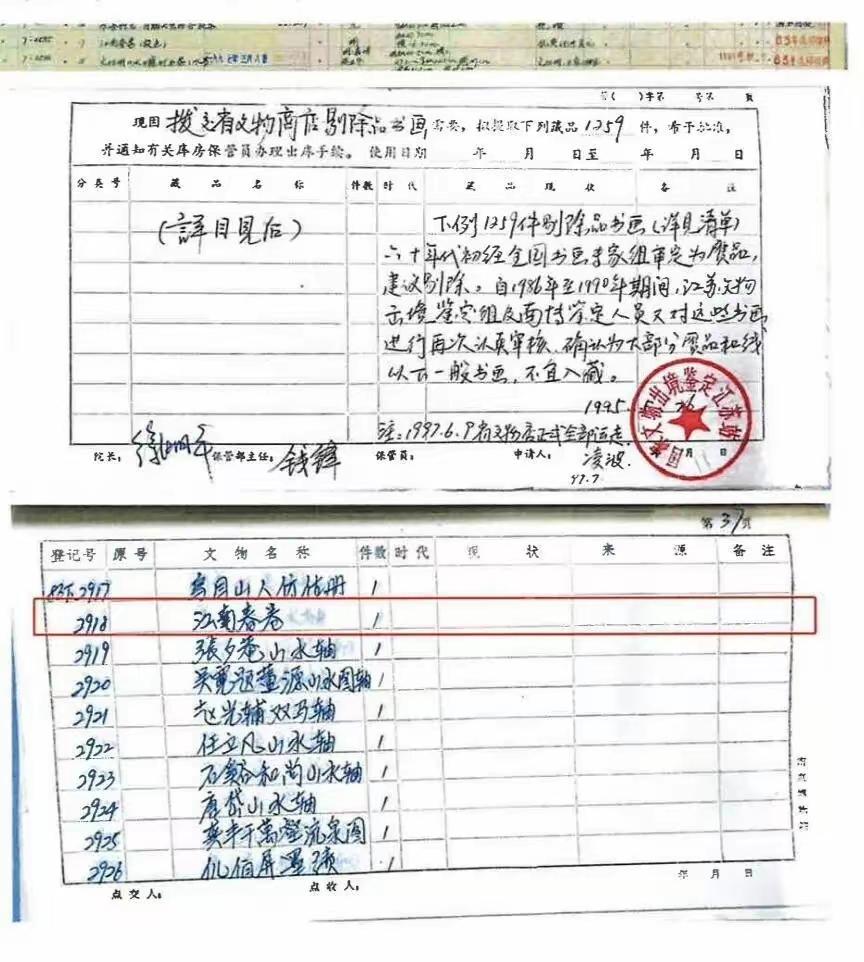 字第 号第 页
现因 拨交省文物商店剔除品书画 需要，拟提取下列藏品 1259 件，希予批准，
并通知有关库房保管员办理出库手续。使用日期 年 月 日至 年 月 日
分类号 藏品名称 件数 时代 藏品现状 备注
(詳目見后)
下例1259件剔除品书画(详见清单)
六十年代初经全国书画专家组审定为赝品，
建议剔除。自1986年至1990年期间，江苏文物
出境鉴定组及南博鉴定人员又对这些书画
进行再次认真审核，确认为大部分赝品和线
以下一般书画，不宜入藏。
1995. 26
注：1997.6.9省文物店正式全部运走
文物出境鉴定江苏站
月 日
院长： 徐湖平 保管部主任： 钱锋 保管员： 申请人： 凌波
97.7
第37页
登记号 原号 文物名称 件数 时代 现状 来源 备注
2917 仿古册 1
2918 江南春卷 1
2919 張夕菴山水轴 1
2920 吴寛题董源山水图轴 1
2921 赵光辅双马轴 1
2922 任立凡山水轴 1
2923 石溪和尚山水轴 1
2924 唐岱山水轴 1
2925 龚半千萬壑流泉图 1
2926 1
年 月 日
点交人： 点收人：